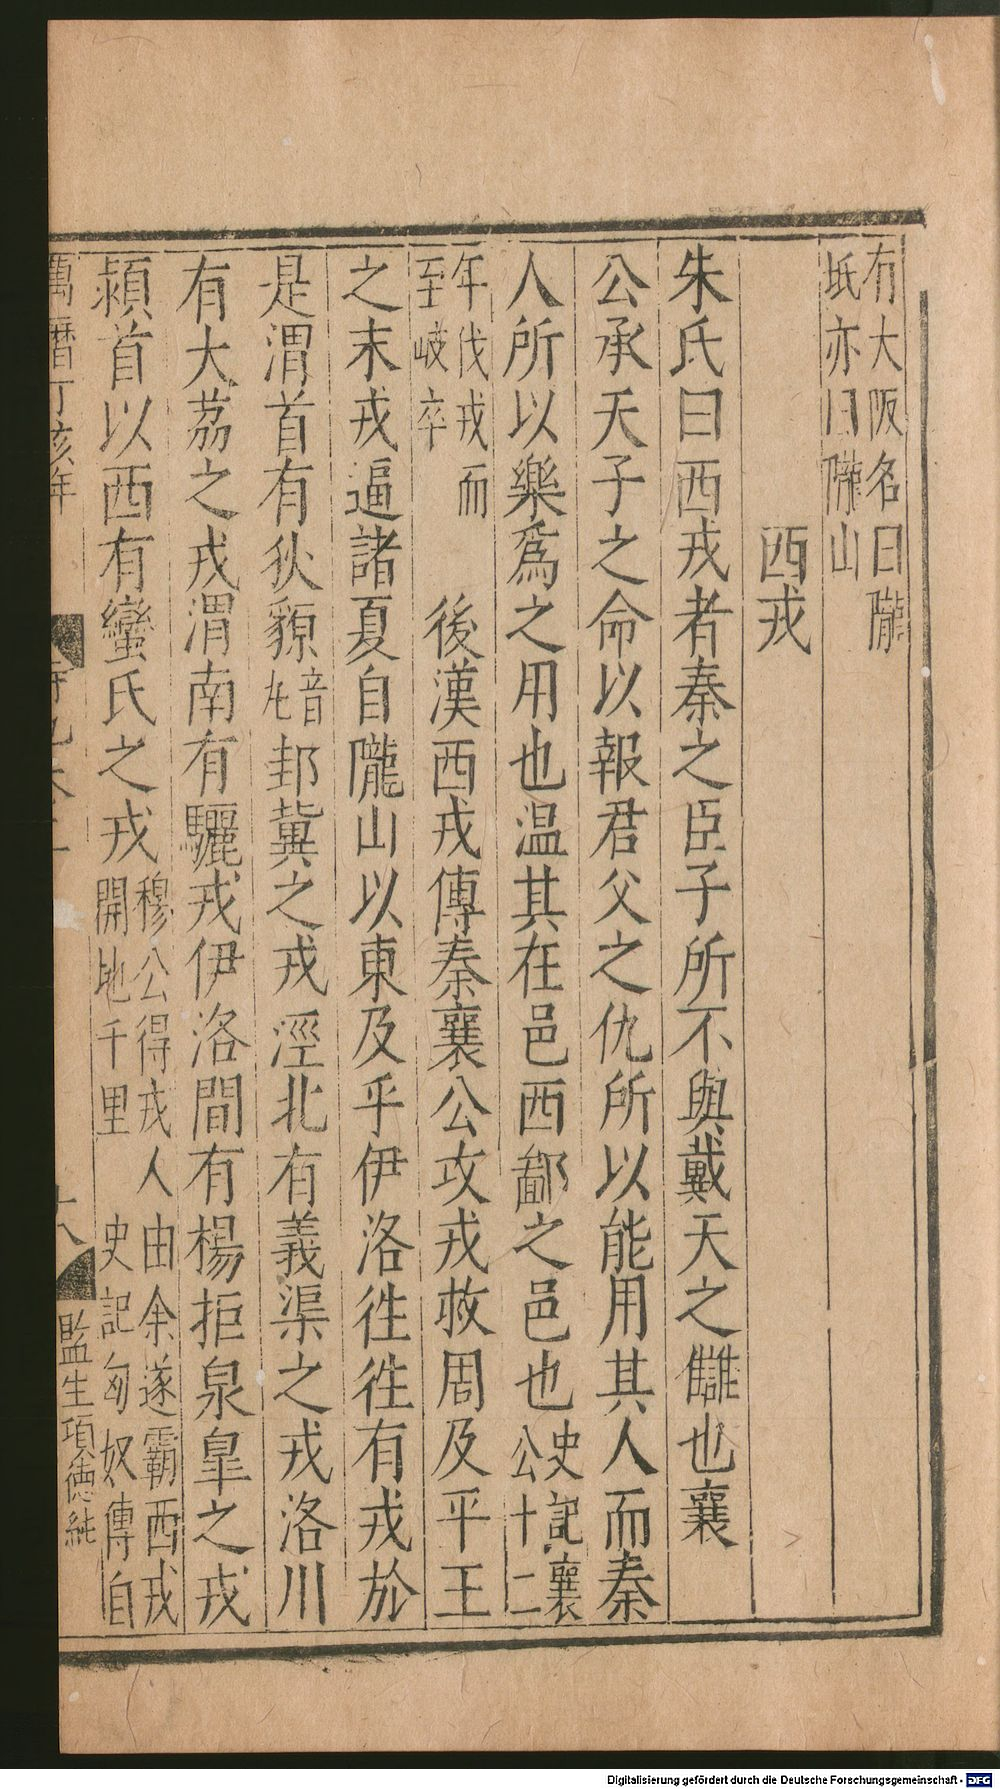 有大阪名曰隴
坻亦曰隴山
西戎
朱氏曰西戎者秦之臣子所不與戴天之讎也襄
公承天子之命以報君父之仇所以能用其人而秦
人所以樂爲之用也温其在邑西鄙之邑也史記襄
公十二
年伐戎而
至岐卒
後漢西戎傳秦襄公攻戎救周及平王
之末戎逼諸夏自隴山以東及乎伊洛徃徃有戎於
是渭首有狄䝠音
丸邽冀之戎涇北有義渠之戎洛川
有大荔之戎渭南有驪戎伊洛間有楊拒泉皐之戎
潁首以西有蠻氏之戎穆公得戎人由余遂霸西戎
開地千里 史記匈奴傳自
萬曆丁亥年
十八
監生項德純
Digitalisierung gefördert durch die Deutsche Forschungsgemeinschaft - DFG